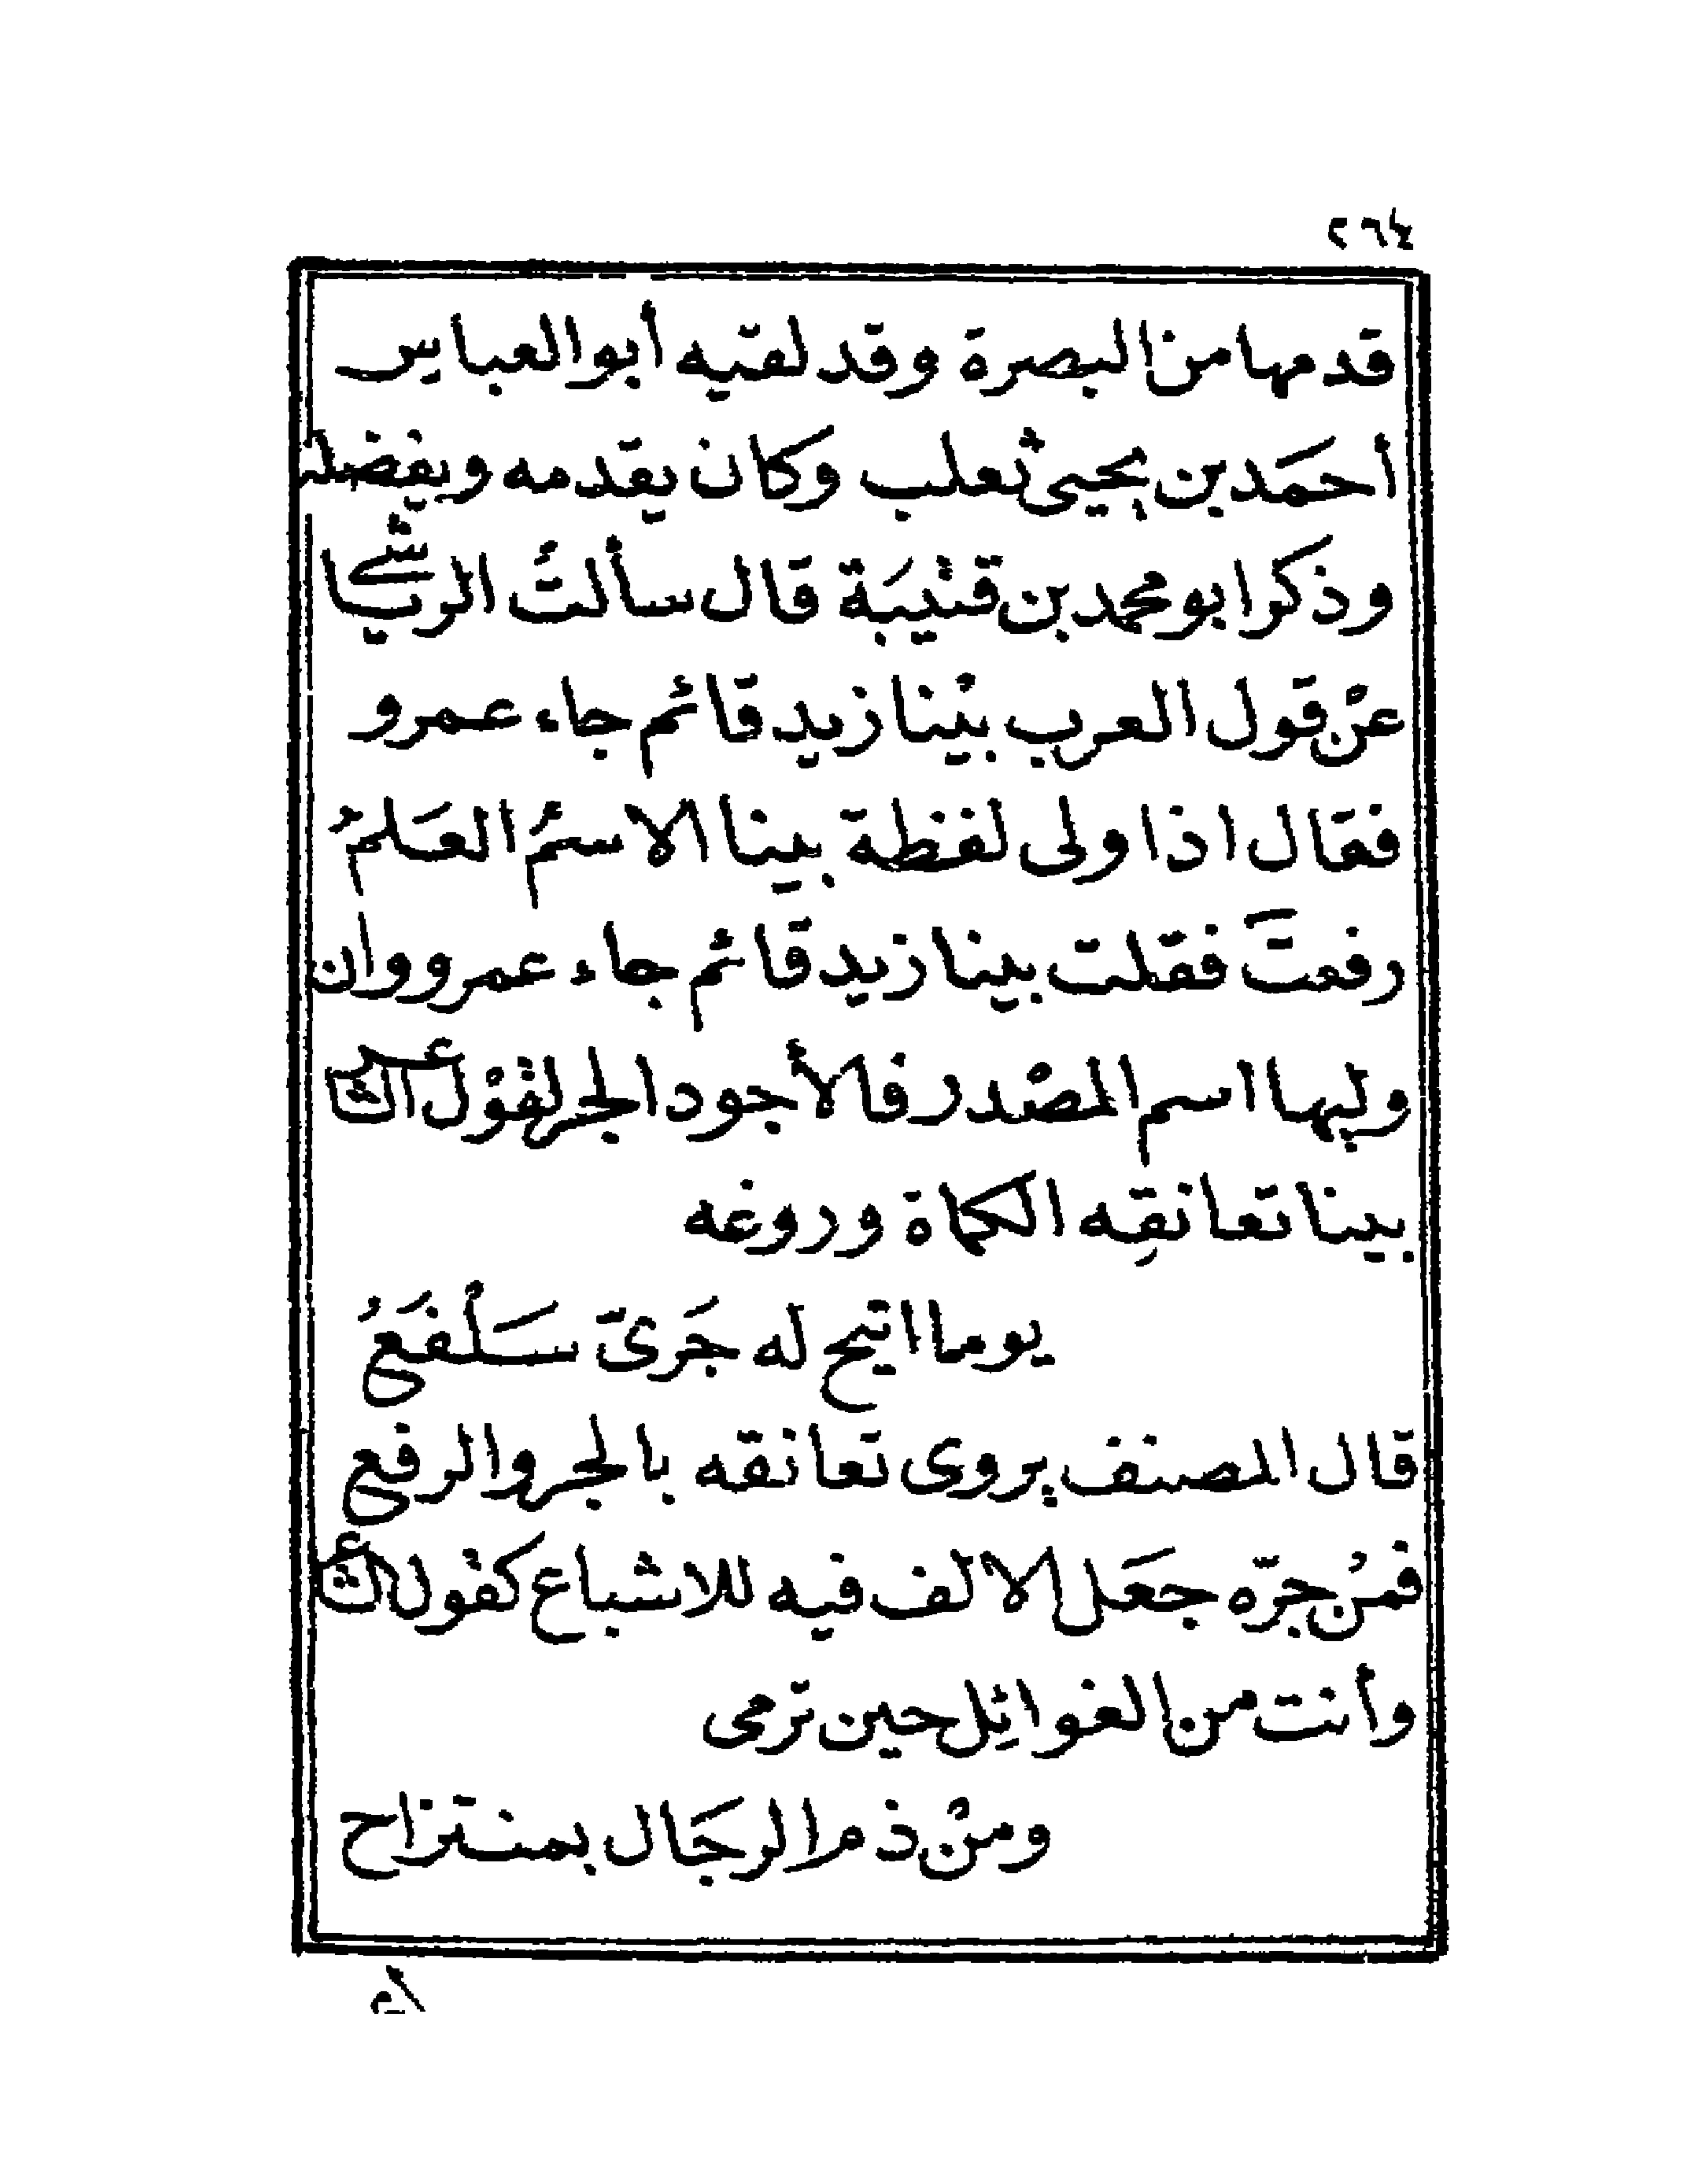 ٢٦٤
قدمها من البصرة وقد لقيه أبو العباس
أحمَد بن يحيى ثعلب وكان يقدمه ويفضله
وذكر ابو محمد بن قتيْبَة قال سألتُ الرياشي
عنْ قول العرب بيْنا زيد قائم جاء عمرو
فقال اذا ولى لفظة بينا الاسمُ العَلمُ
رفعتَ فقلت بينا زيد قائم جاء عمرو وان
وليها اسم المصْدر فالأجود الجر لقوْل الشاعر
بينا تعانقِه الكماة وروغه
يوما اتيح له جَرىّ سَلْفَعُ
قال المصنف يروى تعانقه بالجر والرفع
فمنْ جرّه جعَل الالف فيه للاشباع كقول الشاعر
وأنت من الغوائِل حين ترمى
ومنْ ذم الرجَال بمنتزاح